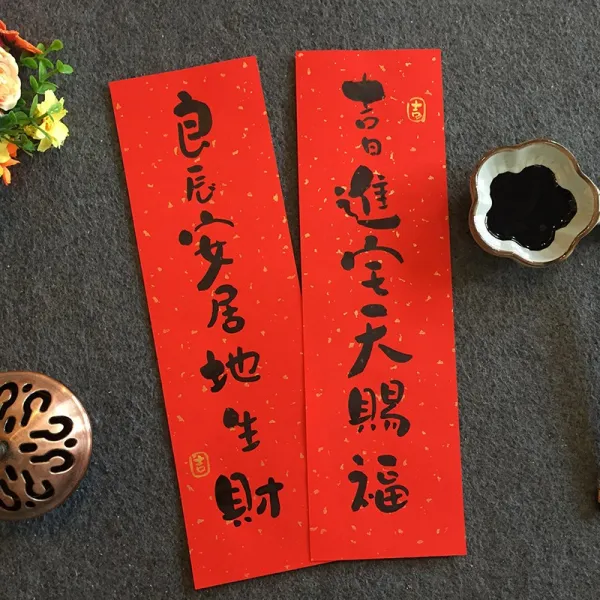 吉日進宅天賜福
吉
良辰安居地生財
吉